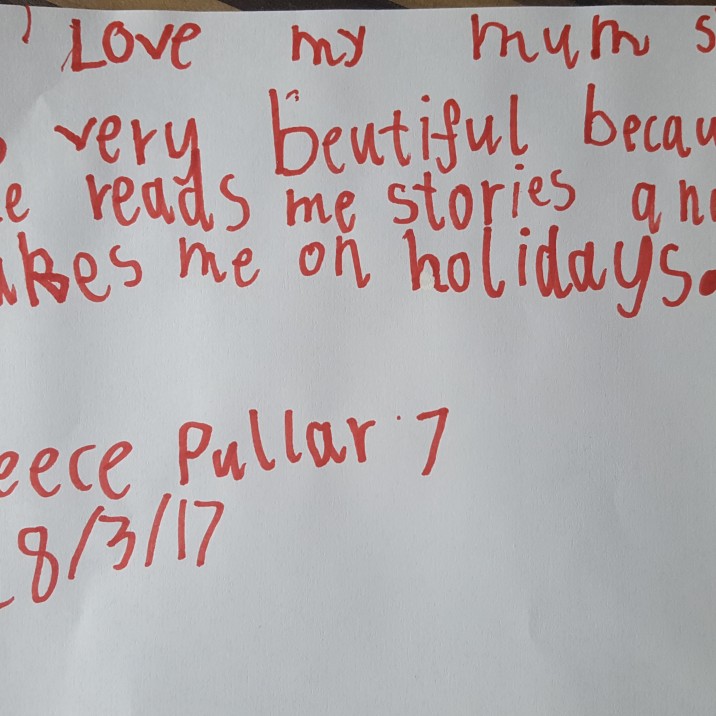 Love my mum s
very beutiful becau
e reads me stories an
akes me on holidays.
eece Pullar 7
28/3/17